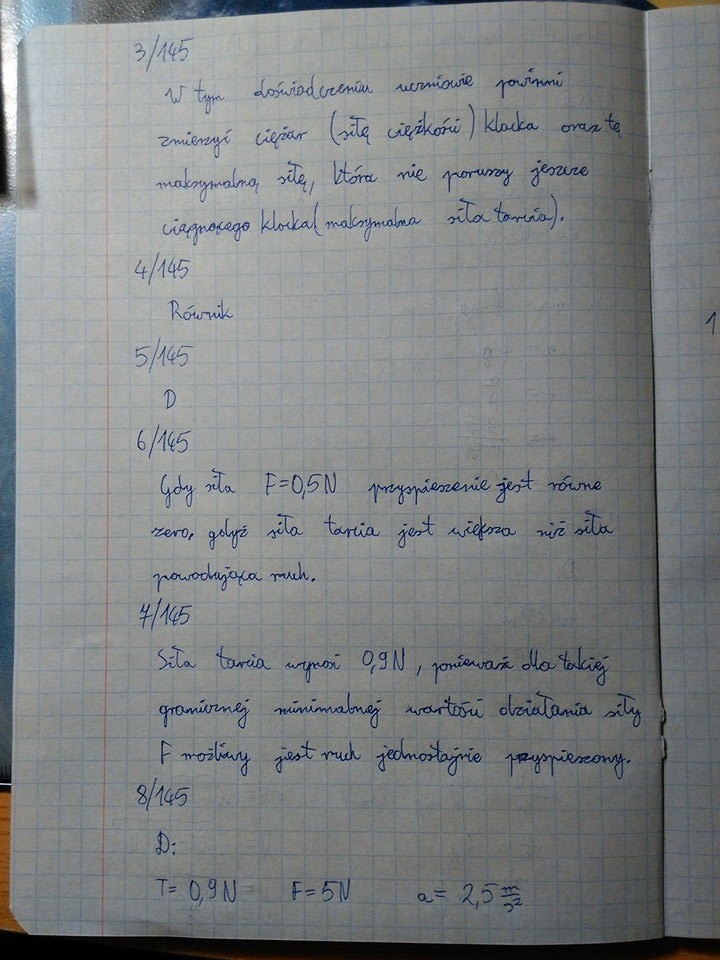 3/145
W tym doświadczeniu uczniowie powinni
zmierzyć ciężar (siłę ciężkości) klocka oraz tę
maksymalną siłę, która nie poruszy jeszcze
ciągnącego klocka (maksymalna siła tarcia).
4/145
Równik
5/145
D
6/145
Gdy siła F=0,5N przyspieszenie jest równe
zero, gdyż siła tarcia jest większa niż siła
powodująca ruch.
7/145
Siła tarcia wynosi 0,9N, ponieważ dla takiej
granicznej minimalnej wartości działania siły
F możliwy jest ruch jednostajnie przyspieszony.
8/145
D:
T= 0,9N F=5N a= 2,5 m/s²
1